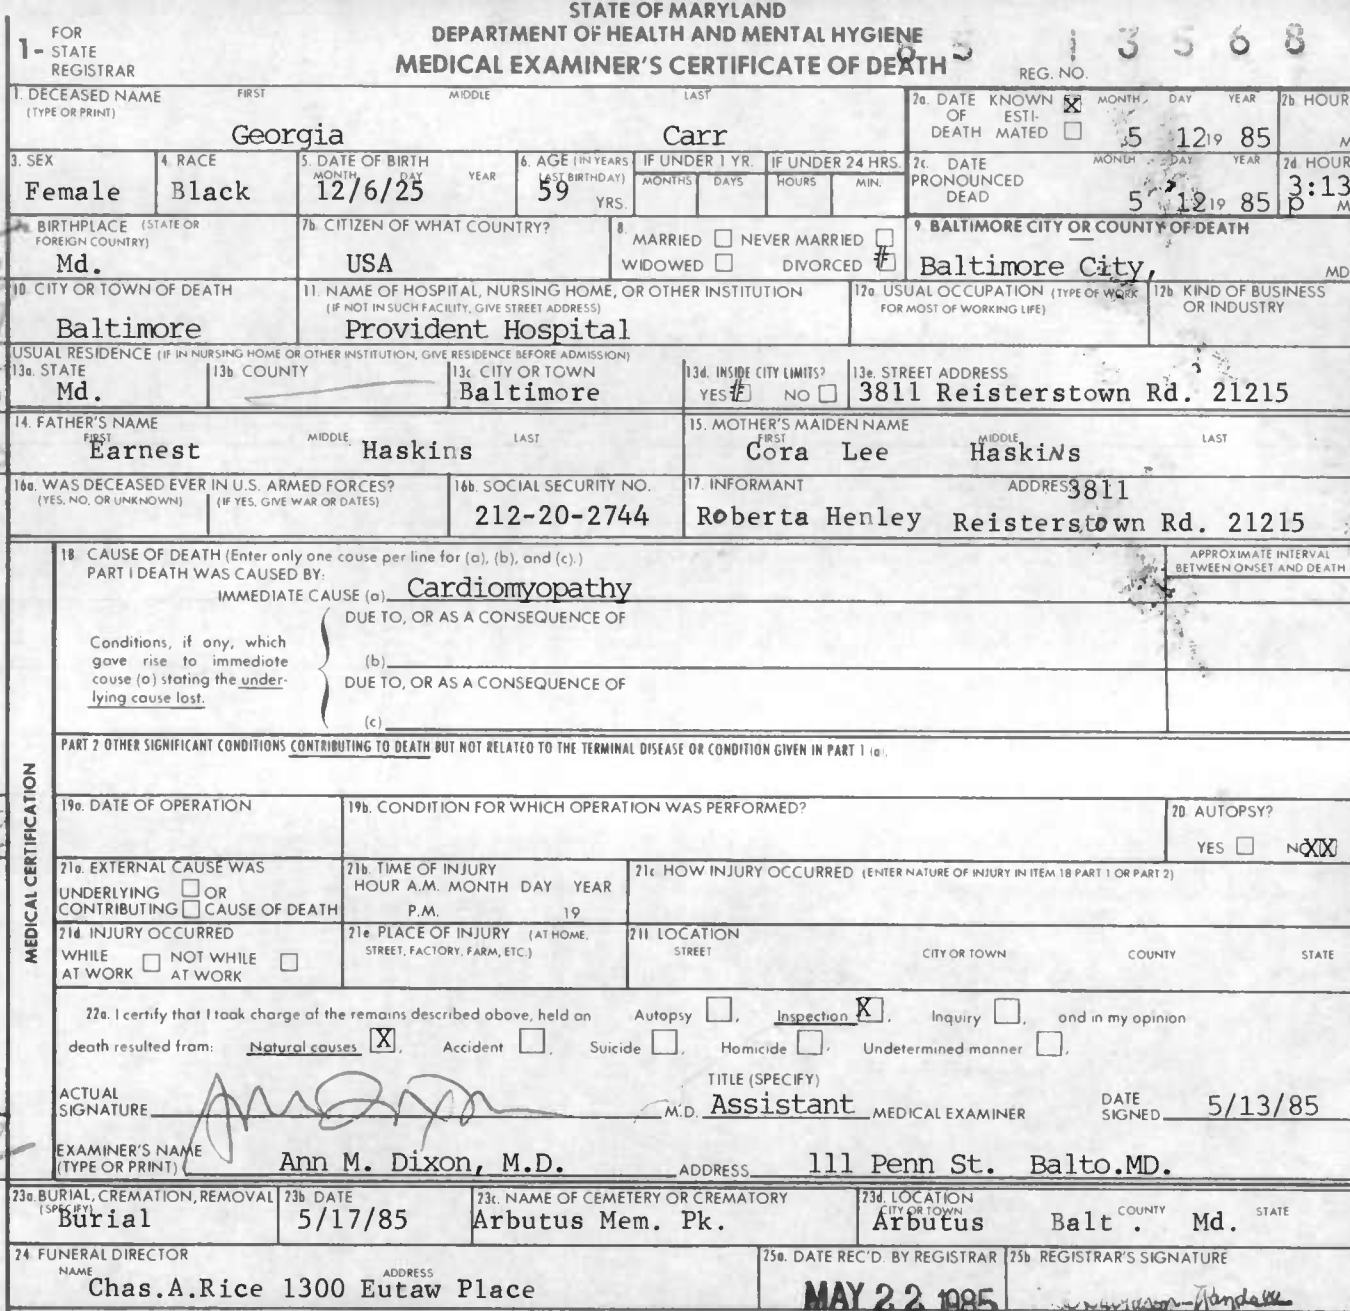 STATE OF MARYLAND
DEPARTMENT OF HEALTH AND MENTAL HYGIENE
MEDICAL EXAMINER'S CERTIFICATE OF DEATH
1- FOR STATE REGISTRAR
REG. NO. 85 13568
1. DECEASED NAME (TYPE OR PRINT) FIRST MIDDLE LAST
Georgia Carr
2a. DATE OF DEATH KNOWN X ESTIMATED MONTH DAY YEAR
5 12 19 85
2b HOUR M
3. SEX
Female
4. RACE
Black
5. DATE OF BIRTH MONTH DAY YEAR
12/6/25
6. AGE (IN YEARS LAST BIRTHDAY)
59 YRS.
IF UNDER 1 YR. MONTHS DAYS
IF UNDER 24 HRS. HOURS MIN.
2c. DATE PRONOUNCED DEAD MONTH DAY YEAR
5 12 19 85
2d HOUR
3:13 p M
BIRTHPLACE (STATE OR FOREIGN COUNTRY)
Md.
7b. CITIZEN OF WHAT COUNTRY?
USA
8. MARRIED NEVER MARRIED
WIDOWED DIVORCED #
9 BALTIMORE CITY OR COUNTY OF DEATH
Baltimore City, MD
10. CITY OR TOWN OF DEATH
Baltimore
11. NAME OF HOSPITAL, NURSING HOME, OR OTHER INSTITUTION
(IF NOT IN SUCH FACILITY, GIVE STREET ADDRESS)
Provident Hospital
12a. USUAL OCCUPATION (TYPE OF WORK FOR MOST OF WORKING LIFE)
12b. KIND OF BUSINESS OR INDUSTRY
USUAL RESIDENCE (IF IN NURSING HOME OR OTHER INSTITUTION, GIVE RESIDENCE BEFORE ADMISSION)
13a. STATE
Md.
13b COUNTY
13c CITY OR TOWN
Baltimore
13d. INSIDE CITY LIMITS?
YES # NO
13e. STREET ADDRESS
3811 Reisterstown Rd. 21215
14. FATHER'S NAME FIRST MIDDLE LAST
Earnest Haskins
15. MOTHER'S MAIDEN NAME FIRST MIDDLE LAST
Cora Lee Haskins
16a. WAS DECEASED EVER IN U.S. ARMED FORCES?
(YES, NO, OR UNKNOWN) (IF YES, GIVE WAR OR DATES)
16b. SOCIAL SECURITY NO.
212-20-2744
17. INFORMANT ADDRESS
Roberta Henley 3811 Reisterstown Rd. 21215
MEDICAL CERTIFICATION
18. CAUSE OF DEATH (Enter only one cause per line for (a), (b), and (c).)
PART I DEATH WAS CAUSED BY:
IMMEDIATE CAUSE (a) Cardiomyopathy
APPROXIMATE INTERVAL BETWEEN ONSET AND DEATH
Conditions, if any, which gave rise to immediate cause (a) stating the underlying cause last.
DUE TO, OR AS A CONSEQUENCE OF
(b)
DUE TO, OR AS A CONSEQUENCE OF
(c)
PART 2 OTHER SIGNIFICANT CONDITIONS CONTRIBUTING TO DEATH BUT NOT RELATED TO THE TERMINAL DISEASE OR CONDITION GIVEN IN PART 1 (a).
19a. DATE OF OPERATION
19b. CONDITION FOR WHICH OPERATION WAS PERFORMED?
20 AUTOPSY?
YES NO XX
21a. EXTERNAL CAUSE WAS
UNDERLYING OR
CONTRIBUTING CAUSE OF DEATH
21b. TIME OF INJURY
HOUR A.M. MONTH DAY YEAR
P.M. 19
21c HOW INJURY OCCURRED (ENTER NATURE OF INJURY IN ITEM 18 PART 1 OR PART 2)
21d INJURY OCCURRED
WHILE AT WORK NOT WHILE AT WORK
21e PLACE OF INJURY (AT HOME, STREET, FACTORY, FARM, ETC.)
21f LOCATION
STREET CITY OR TOWN COUNTY STATE
22a. I certify that I took charge of the remains described above, held an Autopsy , Inspection X , Inquiry , and in my opinion
death resulted from: Natural causes X , Accident , Suicide , Homicide , Undetermined manner .
ACTUAL SIGNATURE M.D.
TITLE (SPECIFY)
Assistant MEDICAL EXAMINER
DATE SIGNED 5/13/85
EXAMINER'S NAME (TYPE OR PRINT) Ann M. Dixon, M.D. ADDRESS 111 Penn St. Balto.MD.
23a. BURIAL, CREMATION, REMOVAL (SPECIFY)
Burial
23b DATE
5/17/85
23c. NAME OF CEMETERY OR CREMATORY
Arbutus Mem. Pk.
23d. LOCATION CITY OR TOWN COUNTY STATE
Arbutus Balt. Md.
24 FUNERAL DIRECTOR
NAME ADDRESS
Chas.A.Rice 1300 Eutaw Place
25a. DATE REC'D. BY REGISTRAR
MAY 22 1985
25b REGISTRAR'S SIGNATURE